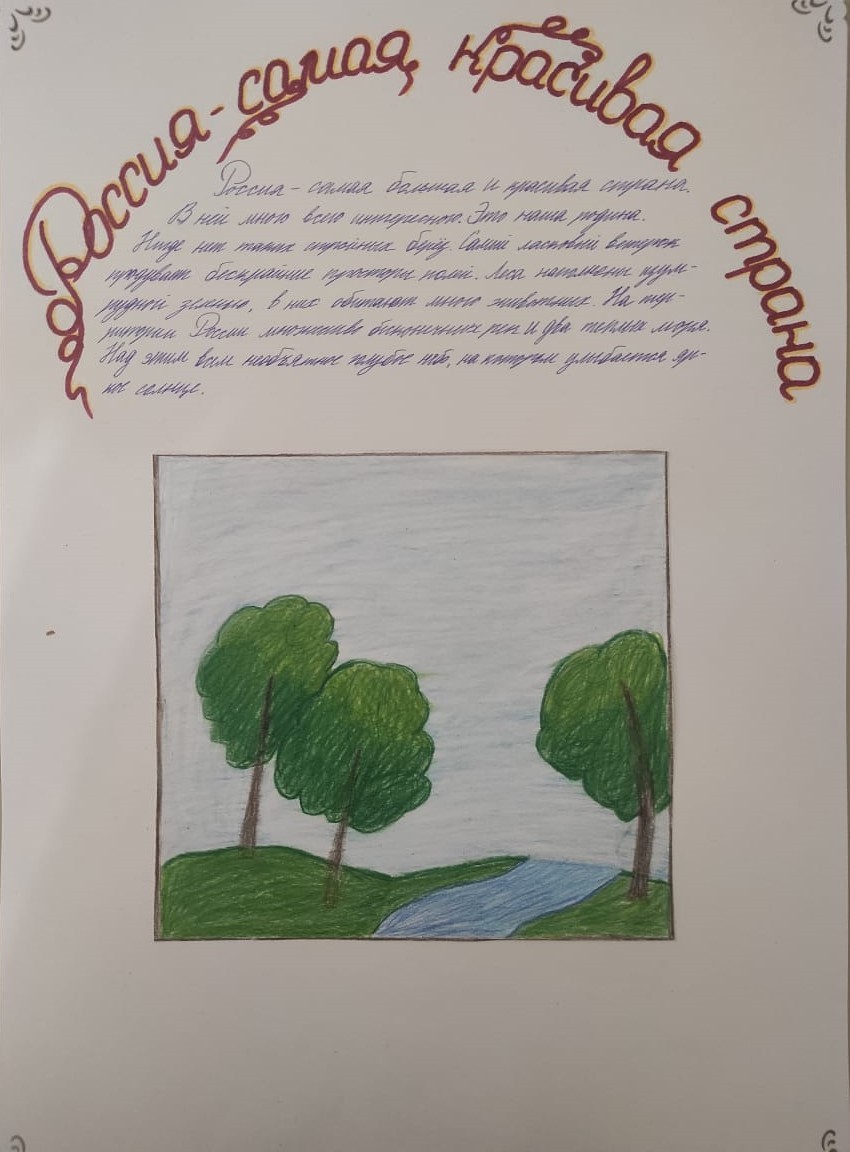 Россия - самая красивая страна
Россия - самая большая и красивая страна.
В ней много всего интересного. Это наша родина.
Нигде нет таких стройных берёз. Самый ласковый ветерок
продувает бескрайние просторы полей. Леса наполнены изум-
рудной зеленью, в них обитают много животных. На тер-
ритории России множество бесконечных рек и два теплых моря.
Над этим всем необъятное голубое небо, на котором улыбается яр-
кое солнце.